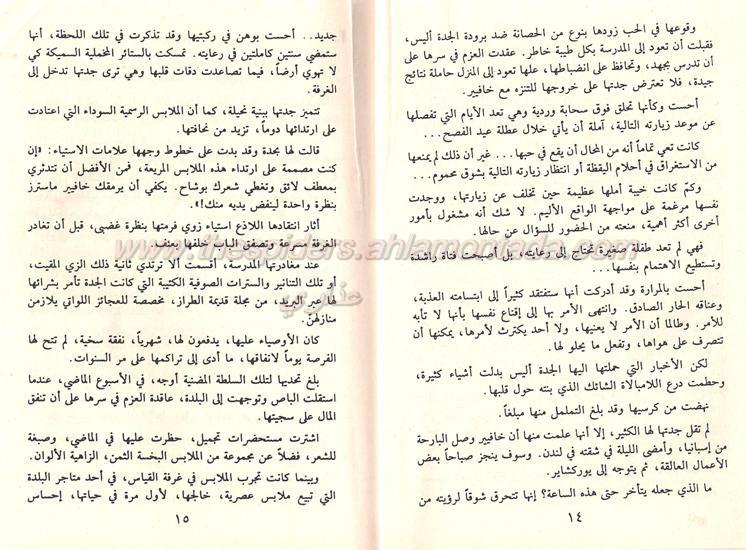 وقوعها في الحب زودها بنوع من الحصانة ضد برودة الجدة أليس،
فقبلت أن تعود إلى المدرسة بكل طيبة خاطر. عقدت العزم في سرها على
أن تدرس بجهد، وتحافظ على انضباطها، علها تعود إلى المنزل حاملة نتائج
جيدة، فلا تعترض جدتها على خروجها للتنزه مع خافيير.
أحست وكأنها تحلق فوق سحابة وردية وهي تعد الأيام التي تفصلها
عن موعد زيارته التالية، آملة أن يأتي خلال عطلة عيد الفصح...
كانت تعي تماماً أنه من المحال أن يقع في حبها... غير أن ذلك لم يمنعها
من الاستغراق في أحلام اليقظة أو انتظار زيارته التالية بشوق محموم...
وكم كانت خيبة أملها عظيمة حين تخلف عن زيارتها، ووجدت
نفسها مرغمة على مواجهة الواقع الأليم. لا شك أنه مشغول بأمور
أخرى أكثر أهمية، منعته من الحضور للسؤال عن حالها.
فهي لم تعد طفلة صغيرة تحتاج إلى رعايته، بل أصبحت فتاة راشدة
وتستطيع الاهتمام بنفسها...
أحست بالمرارة وقد أدركت أنها ستفتقد كثيراً إلى ابتسامته العذبة،
وعناقه الحار الصادق. وانتهى الأمر بها إلى إقناع نفسها بأنها لا تأبه
للأمر. وطالما أن الأمر لا يعنيها، ولا أحد يكترث لأمرها، يمكنها أن
تتصرف على هواها، وتفعل ما يحلو لها.
لكن الأخبار التي حملتها اليها الجدة أليس بدلت أشياء كثيرة،
وحطمت درع اللامبالاة الشائك الذي بنته حول قلبها.
نهضت من كرسيها وقد بلغ التململ منها مبلغاً.
لم تقل جدتها لها الكثير، إلا أنها علمت منها أن خافيير وصل البارحة
من إسبانيا، وأمضى الليلة في شقته في لندن. وسوف ينجز صباحاً بعض
الأعمال العالقة، ثم يتوجه إلى يوركشاير.
ما الذي جعله يتأخر حتى هذه الساعة؟ إنها تتحرق شوقاً لرؤيته من
١٤
جديد.. أحست بوهن في ركبتيها وقد تذكرت في تلك اللحظة، أنها
ستمضي سنتين كاملتين في رعايته. تمسكت بالستائر المخملية السميكة كي
لا تهوي أرضاً، فيما تصاعدت دقات قلبها وهي ترى جدتها تدخل إلى
الغرفة.
تتميز جدتها ببنية نحيلة، كما أن الملابس الرسمية السوداء التي اعتادت
على ارتدائها دوماً، تزيد من نحافتها.
قالت لها بحدة وقد بدت على خطوط وجهها علامات الاستياء: «إن
كنت مصممة على ارتداء هذه الملابس المريعة، فمن الأفضل أن تتدثري
بمعطف لائق وتغطي شعرك بوشاح. يكفي أن يرمقك خافيير ماسترز
بنظرة واحدة لينفض يديه منك!».
أثار انتقادها اللاذع استياء زوي فرمتها بنظرة غضبى، قبل أن تغادر
الغرفة مسرعة وتصفق الباب خلفها بعنف.
عند مغادرتها المدرسة، أقسمت ألا ترتدي ثانية ذلك الزي المقيت،
أو تلك التنانير والسترات الصوفية الكئيبة التي كانت الجدة تأمر بشرائها
لها عبر البريد، من مجلة قديمة الطراز، مخصصة للعجائز اللواتي يلازمن
منازلهن.
كان الأوصياء عليها، يدفعون لها، شهرياً، نفقة سخية، لم تتح لها
الفرصة يوماً لانفاقها، ما أدى إلى تراكمها على مر السنوات.
بلغ تحديها لتلك السلطة المضنية أوجه، في الأسبوع الماضي، عندما
استقلت الباص وتوجهت إلى البلدة، عاقدة العزم في سرها على أن تنفق
المال على سجيتها.
اشترت مستحضرات تجميل، حظرت عليها في الماضي، وصبغة
للشعر، فضلاً عن مجموعة من الملابس البخسة الثمن، الزاهية الألوان.
وبينما كانت تجرب الملابس في غرفة القياس، في أحد متاجر البلدة
التي تبيع ملابس عصرية، خالجها، لأول مرة في حياتها، إحساس
١٥
www.thespiders.ahlamontada.com